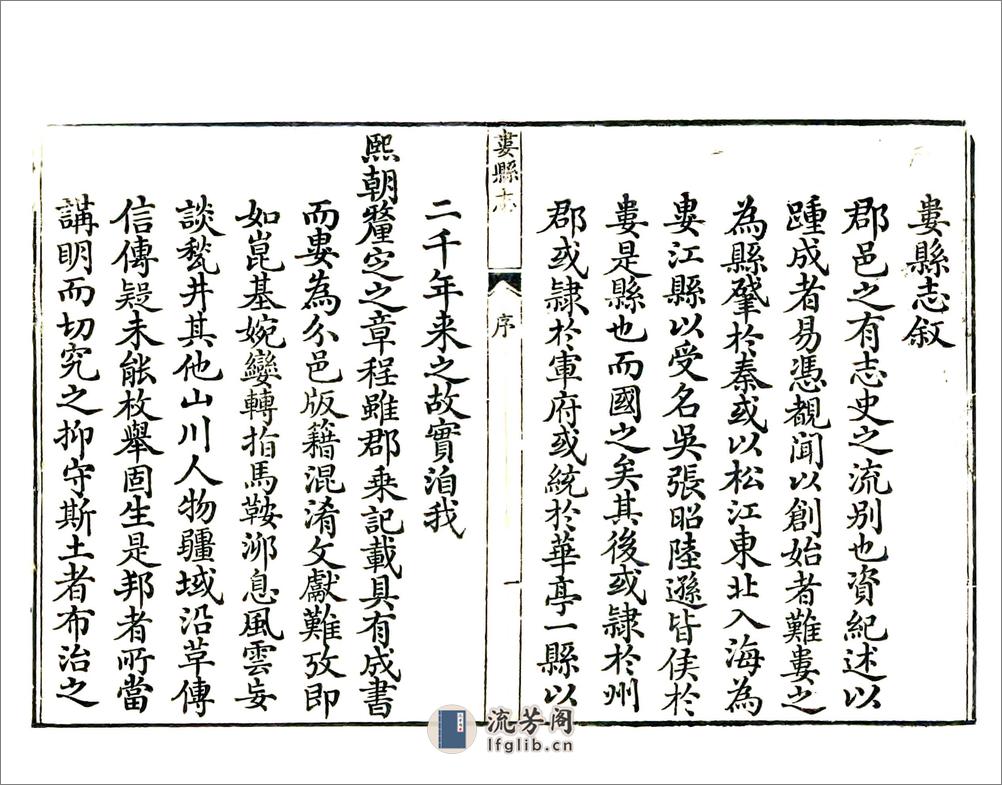 婁縣志叙
郡邑之有志史之流别也資紀述以
踵成者易馮覩聞以創始者難婁之
為縣肇於秦或以松江東北入海為
婁江縣以受名吳張昭陸遜皆侯於
婁是縣也而國之矣其後或隷於州
郡或隷於軍府或統於華亭一縣以
婁縣志
序
二千年来之故實洎我
熙朝釐㝎之章程雖郡乗記載具有成書
而婁為分邑版籍混淆文獻難攷即
如崑基婉孌轉指馬鞍泖息風雲妄
談甃井其他山川人物疆域沿革傳
信傳疑未能枚舉固生是邦者所當
講明而切究之抑守斯土者布治之
流芳阁
lfglib.cn